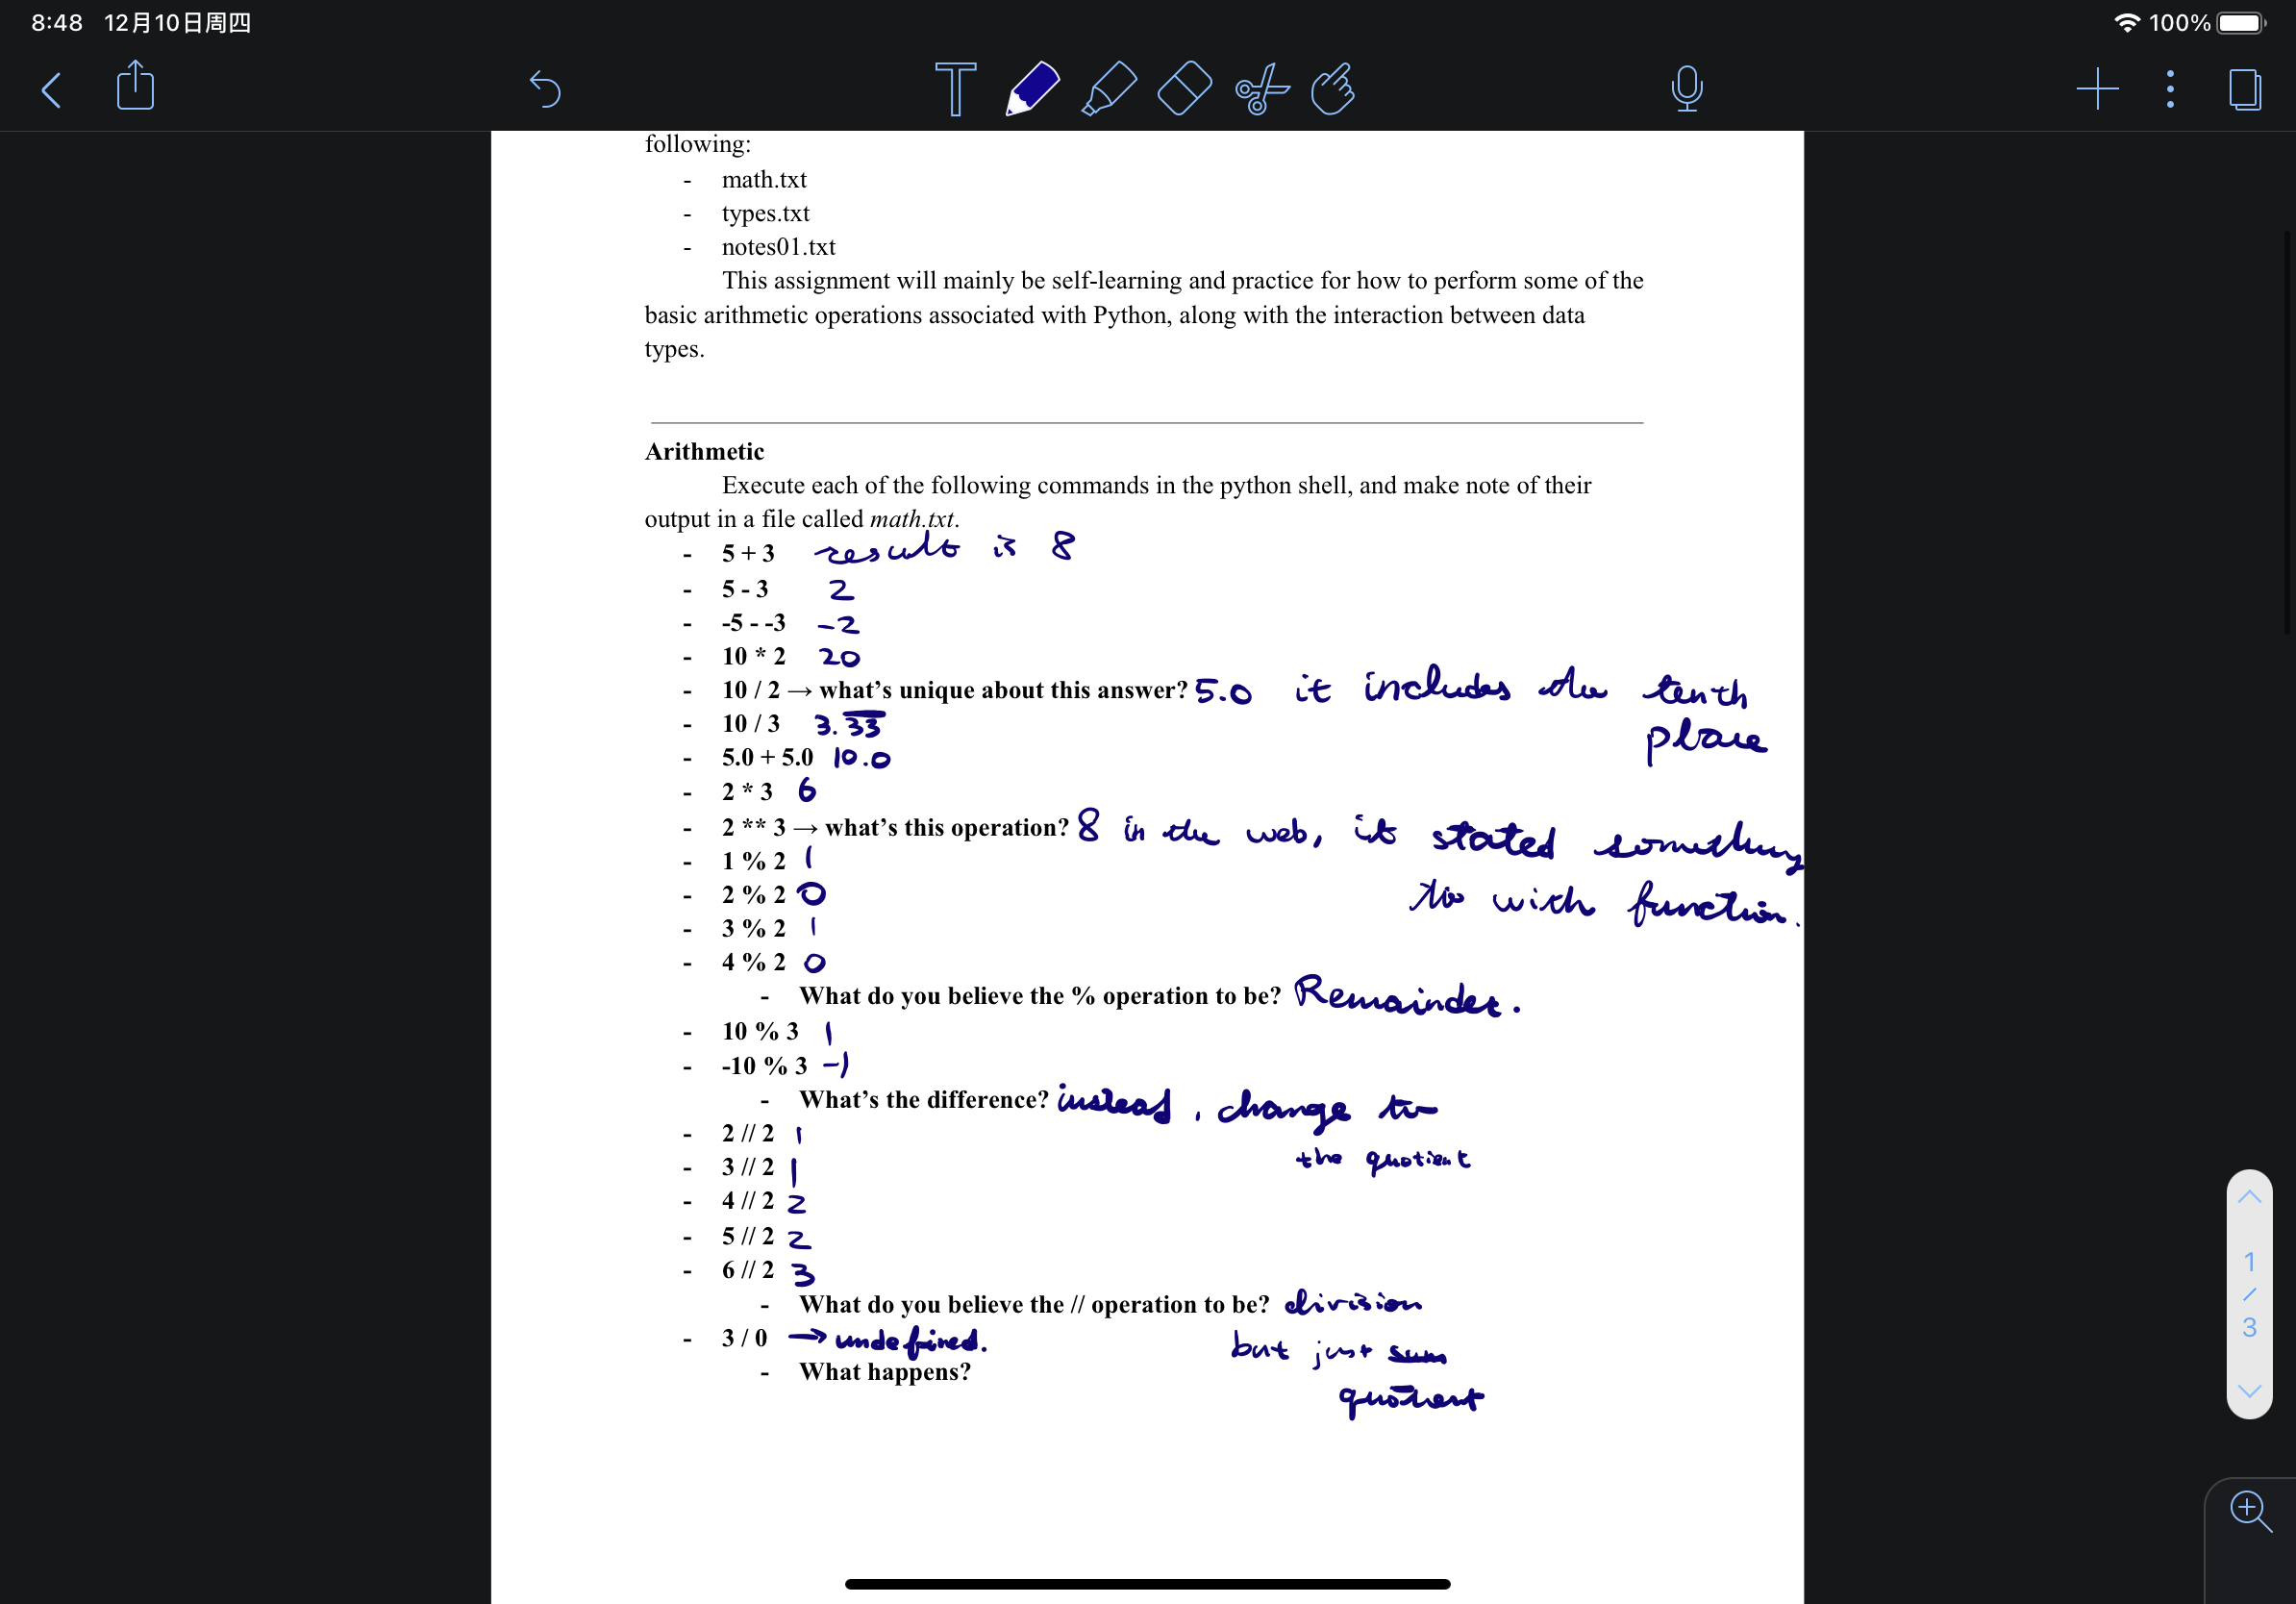 8:48 12月10日周四 100%
following:
- math.txt
- types.txt
- notes01.txt
This assignment will mainly be self-learning and practice for how to perform some of the
basic arithmetic operations associated with Python, along with the interaction between data
types.
Arithmetic
Execute each of the following commands in the python shell, and make note of their
output in a file called math.txt.
- 5 + 3 result is 8
- 5 - 3 2
- -5 - -3 -2
- 10 * 2 20
- 10 / 2 → what's unique about this answer? 5.0 it includes the tenth
place
- 10 / 3 3.33
- 5.0 + 5.0 10.0
- 2 * 3 6
- 2 ** 3 → what's this operation? 8 in the web, it stated something
with function.
- 1 % 2 1
- 2 % 2 0
- 3 % 2 1
- 4 % 2 0
- What do you believe the % operation to be? Remainder.
- 10 % 3 1
- -10 % 3 -1
- What's the difference? instead, change to
the quotient
- 2 // 2 1
- 3 // 2 1
- 4 // 2 2
- 5 // 2 2
- 6 // 2 3
- What do you believe the // operation to be? division
but just sum
quotient
- 3 / 0 → undefined.
- What happens?
1
/
3